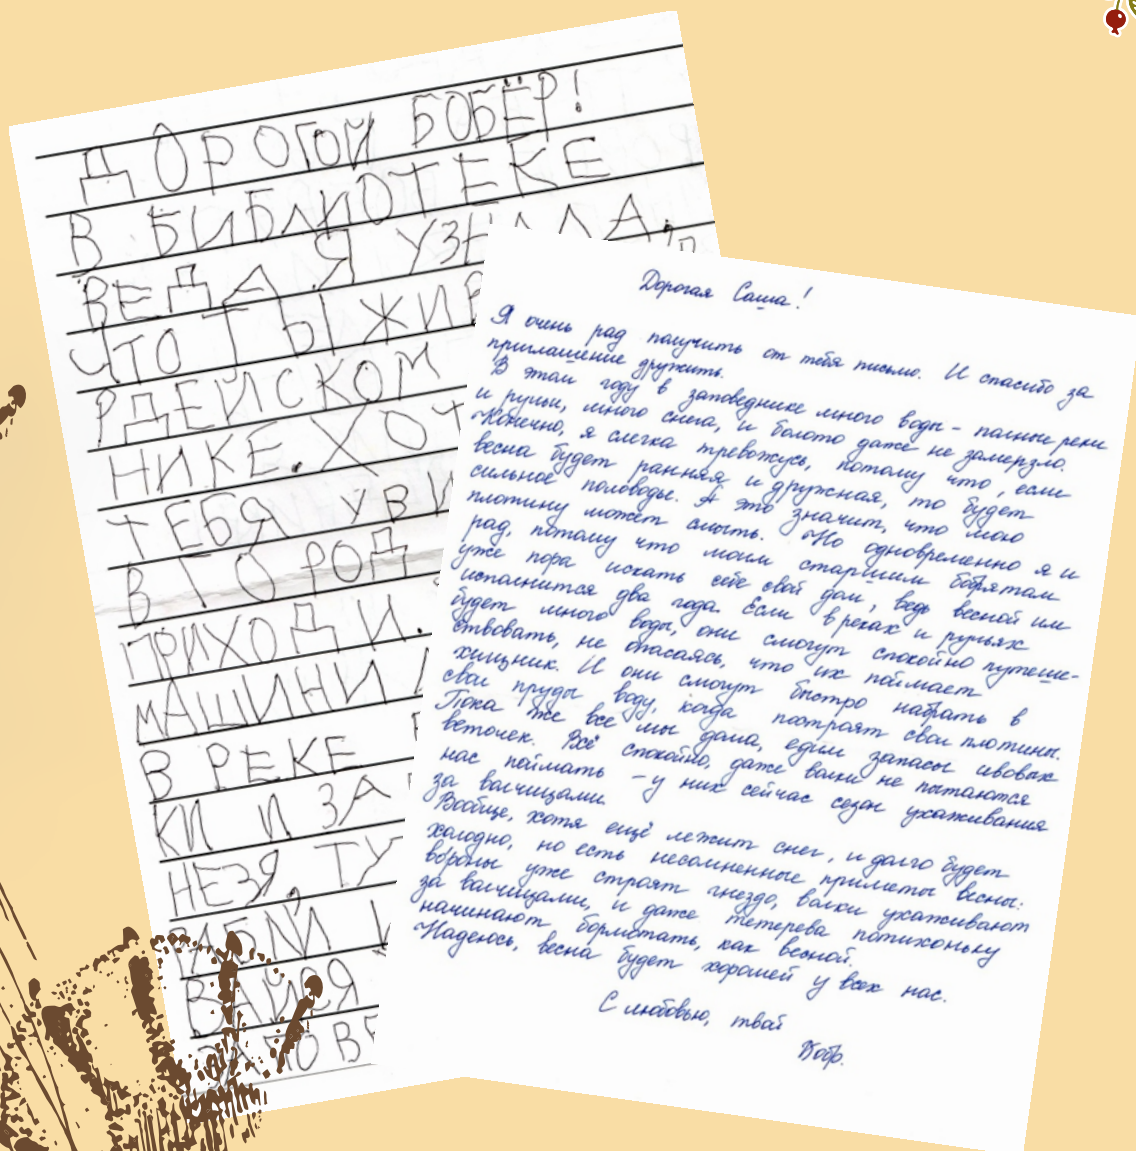 ДОРОГОЙ БОБЁР!
В БИБЛИОТЕКЕ
ВЕДА Я
ЧТО ТЫ ЖИВ
РДЕЙСКОМ
НИКЕ. ХОТ
ТЕБЯ УВИ
В ГОРОД
ПРИХОДИ.
МАШИНИ
В РЕКЕ
КИ И ЗА
НЕЗЯ, ТУ
РЫБЫ
ВАЙСЯ
Дорогая Саша!
Я очень рад получить от тебя письмо. И спасибо за
приглашение дружить.
В этом году в заповеднике много воды – полные реки
и ручьи, много снега, и болото даже не замерзло.
Конечно, я слегка тревожусь, потому что, если
весна будет ранняя и дружная, то будет
сильное половодье. А это значит, что мою
плотину может смыть. Но одновременно я и
рад, потому что моим старшим бобрятам
уже пора искать себе свой дом, ведь весной им
исполнится два года. Если в реках и ручьях
будет много воды, они смогут спокойно путеше-
ствовать, не опасаясь, что их поймает
хищник. И они смогут быстро набрать в
свои пруды воду, когда построят свои плотины.
Пока же все мы дома, едим запасы ивовых
веточек. Всё спокойно, даже волки не пытаются
нас поймать – у них сейчас сезон ухаживания
за волчицами.
Вообще, хотя ещё лежит снег, и долго будет
холодно, но есть несомненные приметы весны:
вороны уже строят гнездо, волки ухаживают
за волчицами, и даже тетерева потихоньку
начинают бормотать, как весной.
Надеюсь, весна будет хорошей у всех нас.
С любовью, твой
Бобр.